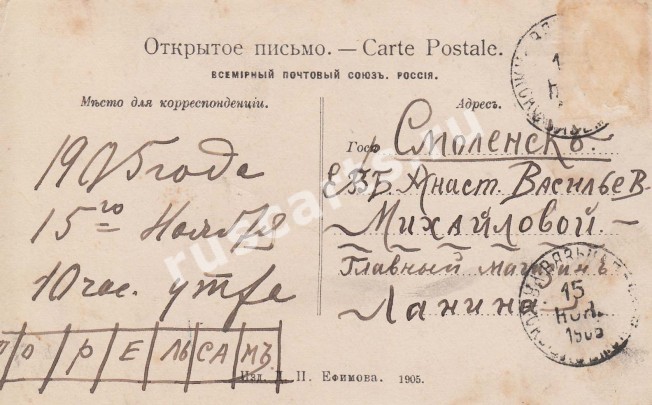 Открытое письмо. — Carte Postale.
ВСЕМІРНЫЙ ПОЧТОВЫЙ СОЮЗЪ. РОССІЯ.
Мѣсто для корреспонденціи.
1905 года
15го Ноября
10 час. утра
О Р Е ЛЬ СА МЪ
Адресъ.
Смоленскъ.
ЕВБ. Анаст. Васильев
Михайловой
Главный магазинъ
Ланина
15
НОЯ.
1905
Изд. Д. П. Ефимова. 1905.
ruscarts.ru